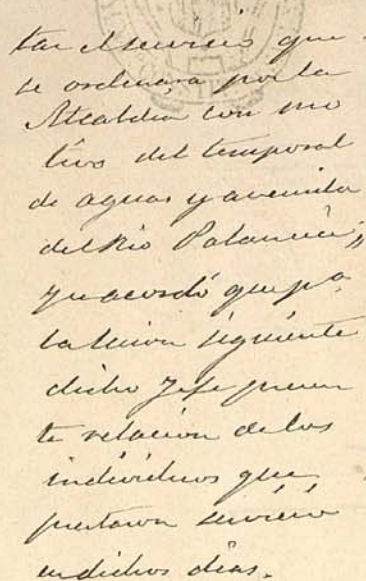 tar el servicio que
se ordenara por la
Alcaldia con mo
tivo del temporal
de aguas y avenida
del Rio Palancia;
y se acordó que pa
la sesion siguiente
dicho Jefe presen
te relacion de los
individuos que
prestaron servicio
en dichos dias.